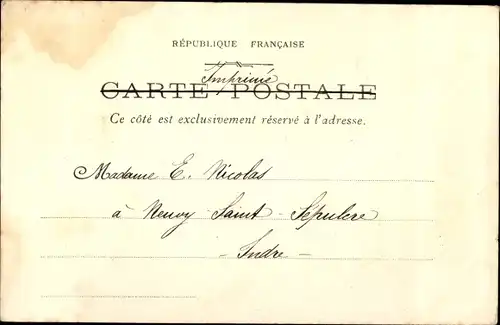 RÉPUBLIQUE FRANÇAISE
Imprimé
CARTE POSTALE
Ce côté est exclusivement réservé à l'adresse.
Madame E. Nicolas
à Neuvy Saint-Sépulcre
Indre